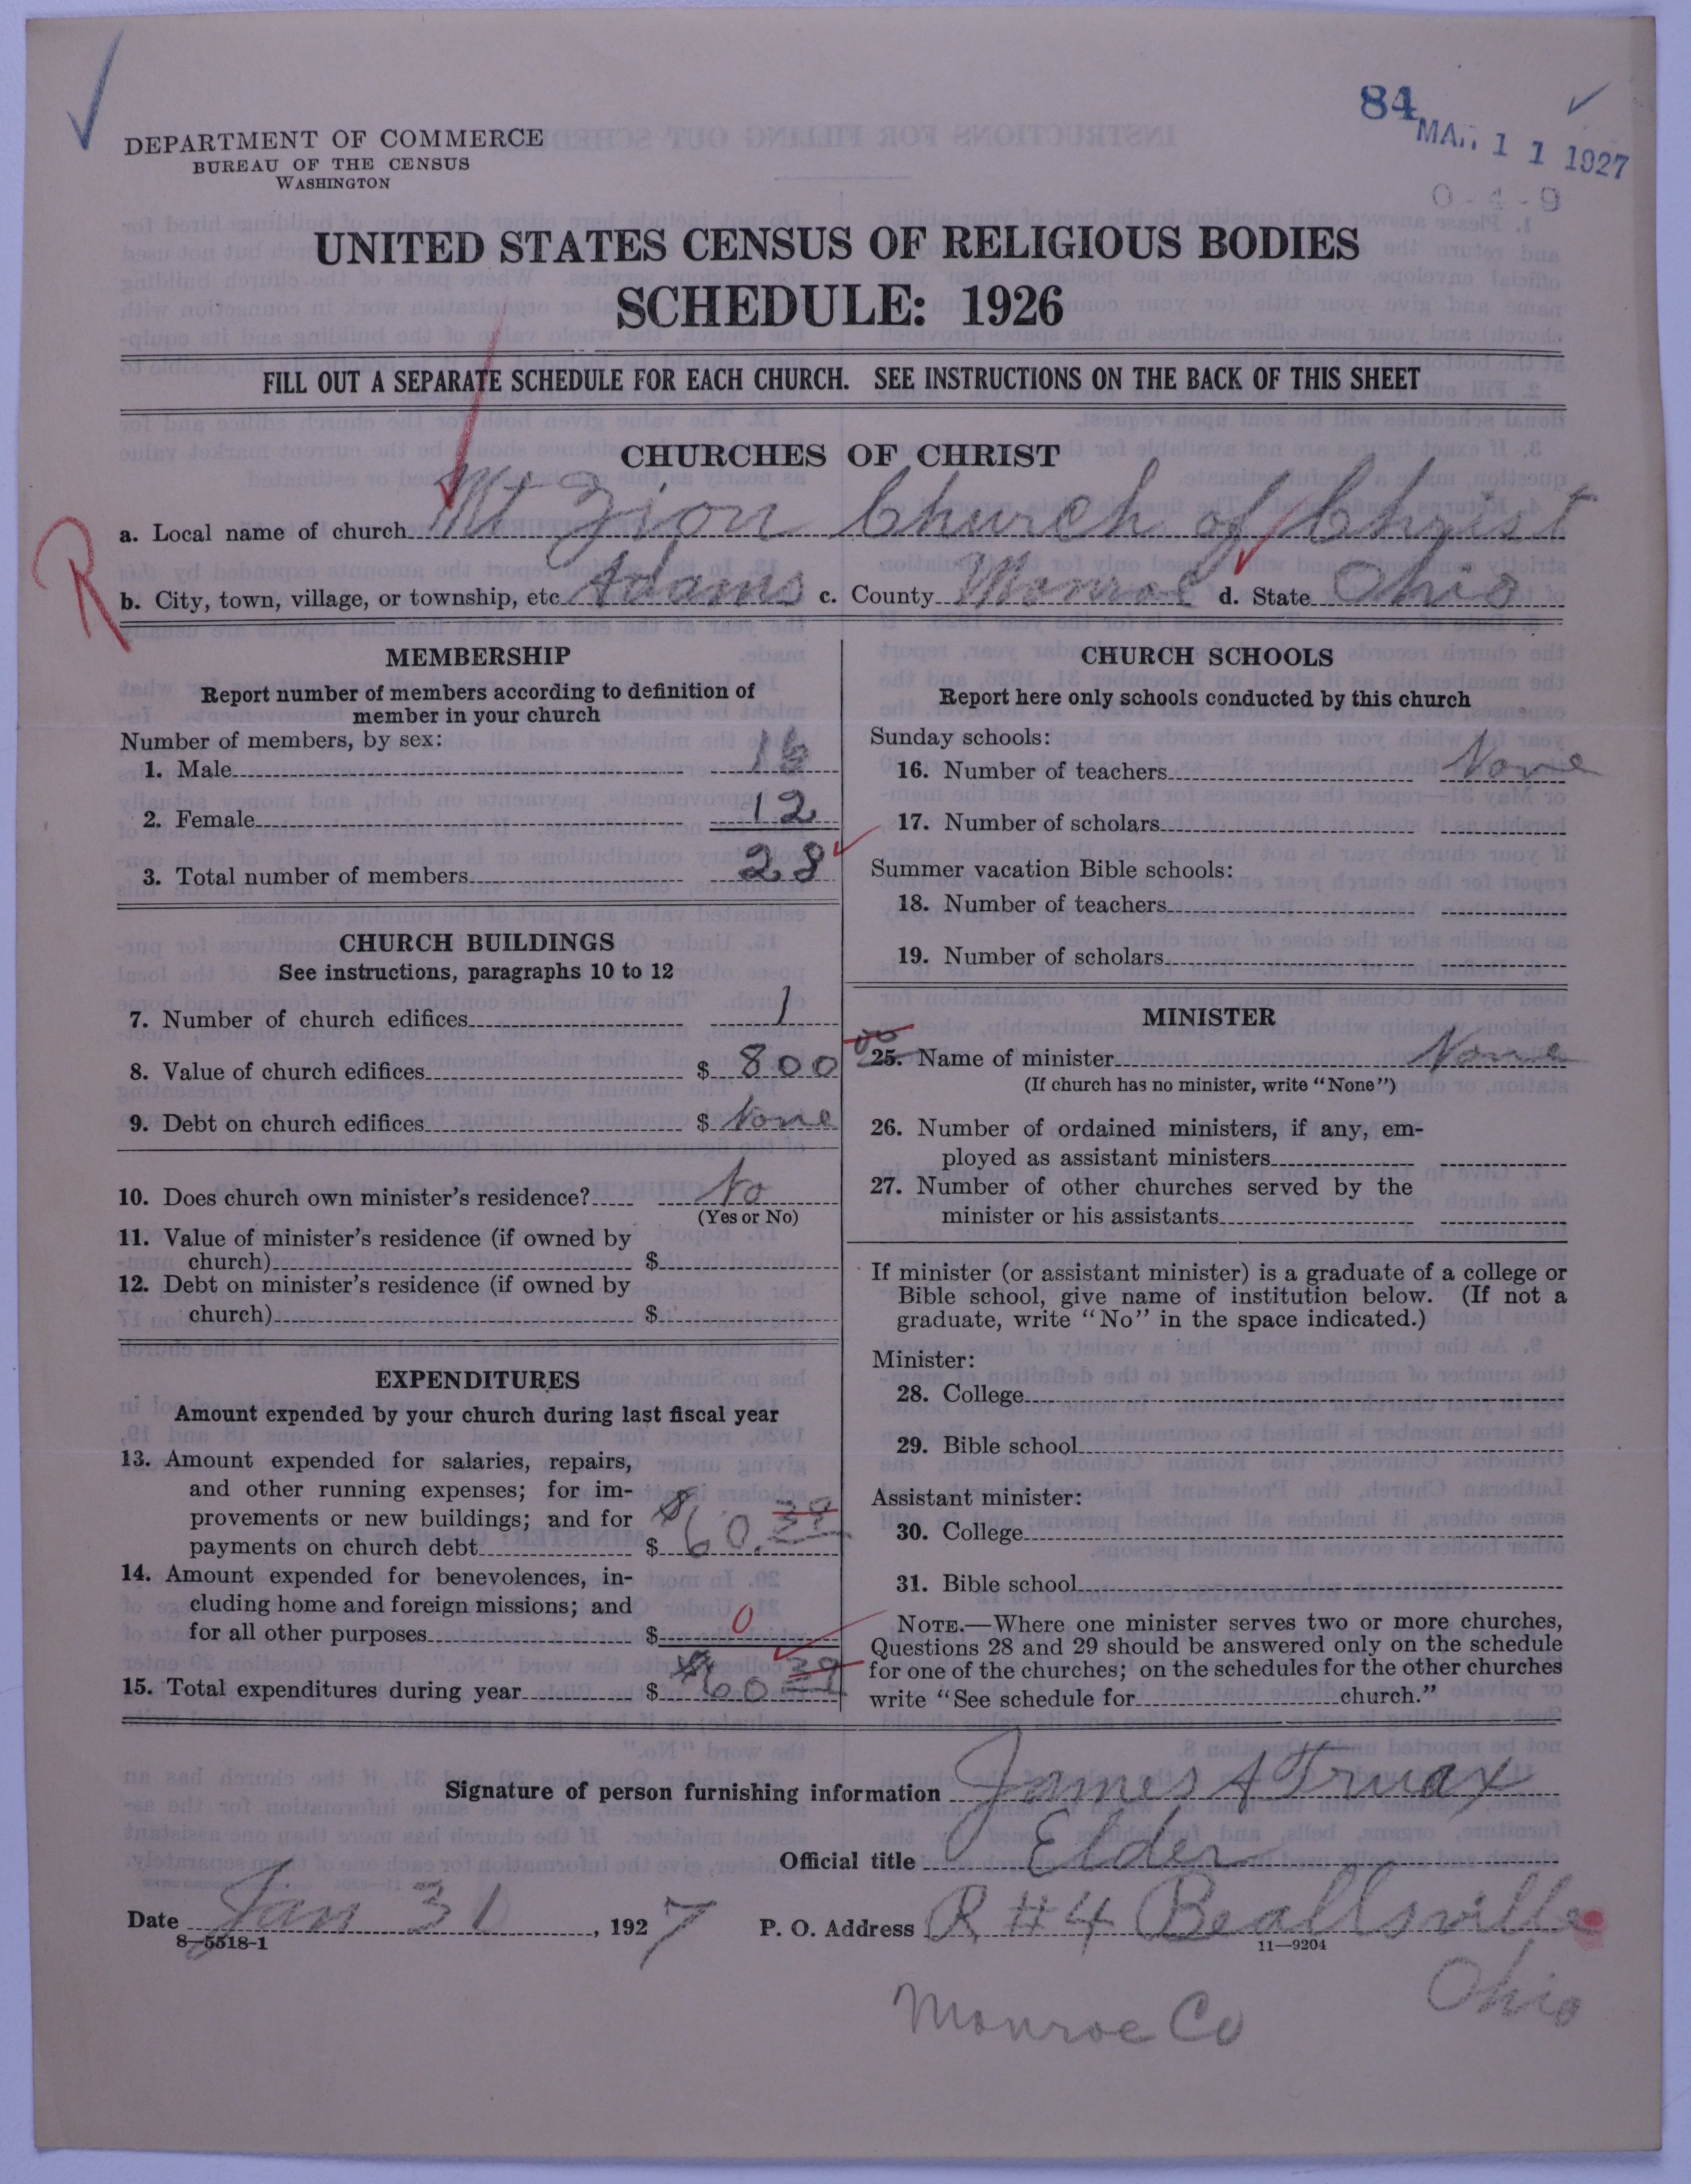 84
MAR 1 1 1927
0-4-9
DEPARTMENT OF COMMERCE
BUREAU OF THE CENSUS
WASHINGTON
UNITED STATES CENSUS OF RELIGIOUS BODIES
SCHEDULE: 1926
FILL OUT A SEPARATE SCHEDULE FOR EACH CHURCH. SEE INSTRUCTIONS ON THE BACK OF THIS SHEET
CHURCHES OF CHRIST
R
a. Local name of church Mt Zion Church of Christ
b. City, town, village, or township, etc. Adams c. County Monroe d. State Ohio
MEMBERSHIP
Report number of members according to definition of
member in your church
Number of members, by sex:
1. Male 16
2. Female 12
3. Total number of members 28
CHURCH BUILDINGS
See instructions, paragraphs 10 to 12
7. Number of church edifices 1
8. Value of church edifices $ 800
9. Debt on church edifices $ None
10. Does church own minister's residence? No
(Yes or No)
11. Value of minister's residence (if owned by
church) $
12. Debt on minister's residence (if owned by
church) $
EXPENDITURES
Amount expended by your church during last fiscal year
13. Amount expended for salaries, repairs,
and other running expenses; for im-
provements or new buildings; and for $
payments on church debt $ 60.39
14. Amount expended for benevolences, in-
cluding home and foreign missions; and
for all other purposes $ 0
15. Total expenditures during year $ $60 39
CHURCH SCHOOLS
Report here only schools conducted by this church
Sunday schools:
16. Number of teachers None
17. Number of scholars
Summer vacation Bible schools:
18. Number of teachers
19. Number of scholars
MINISTER
00
25. Name of minister None
(If church has no minister, write "None")
26. Number of ordained ministers, if any, em-
ployed as assistant ministers
27. Number of other churches served by the
minister or his assistants
If minister (or assistant minister) is a graduate of a college or
Bible school, give name of institution below. (If not a
graduate, write "No" in the space indicated.)
Minister:
28. College
29. Bible school
Assistant minister:
30. College
31. Bible school
NOTE.—Where one minister serves two or more churches,
Questions 28 and 29 should be answered only on the schedule
for one of the churches; on the schedules for the other churches
write "See schedule for church."
Signature of person furnishing information James A Truax
Official title Elder
Date Jan 31, 1927 P. O. Address R #4 Beallsville
8-5518-1 11-9204
Ohio
Monroe Co